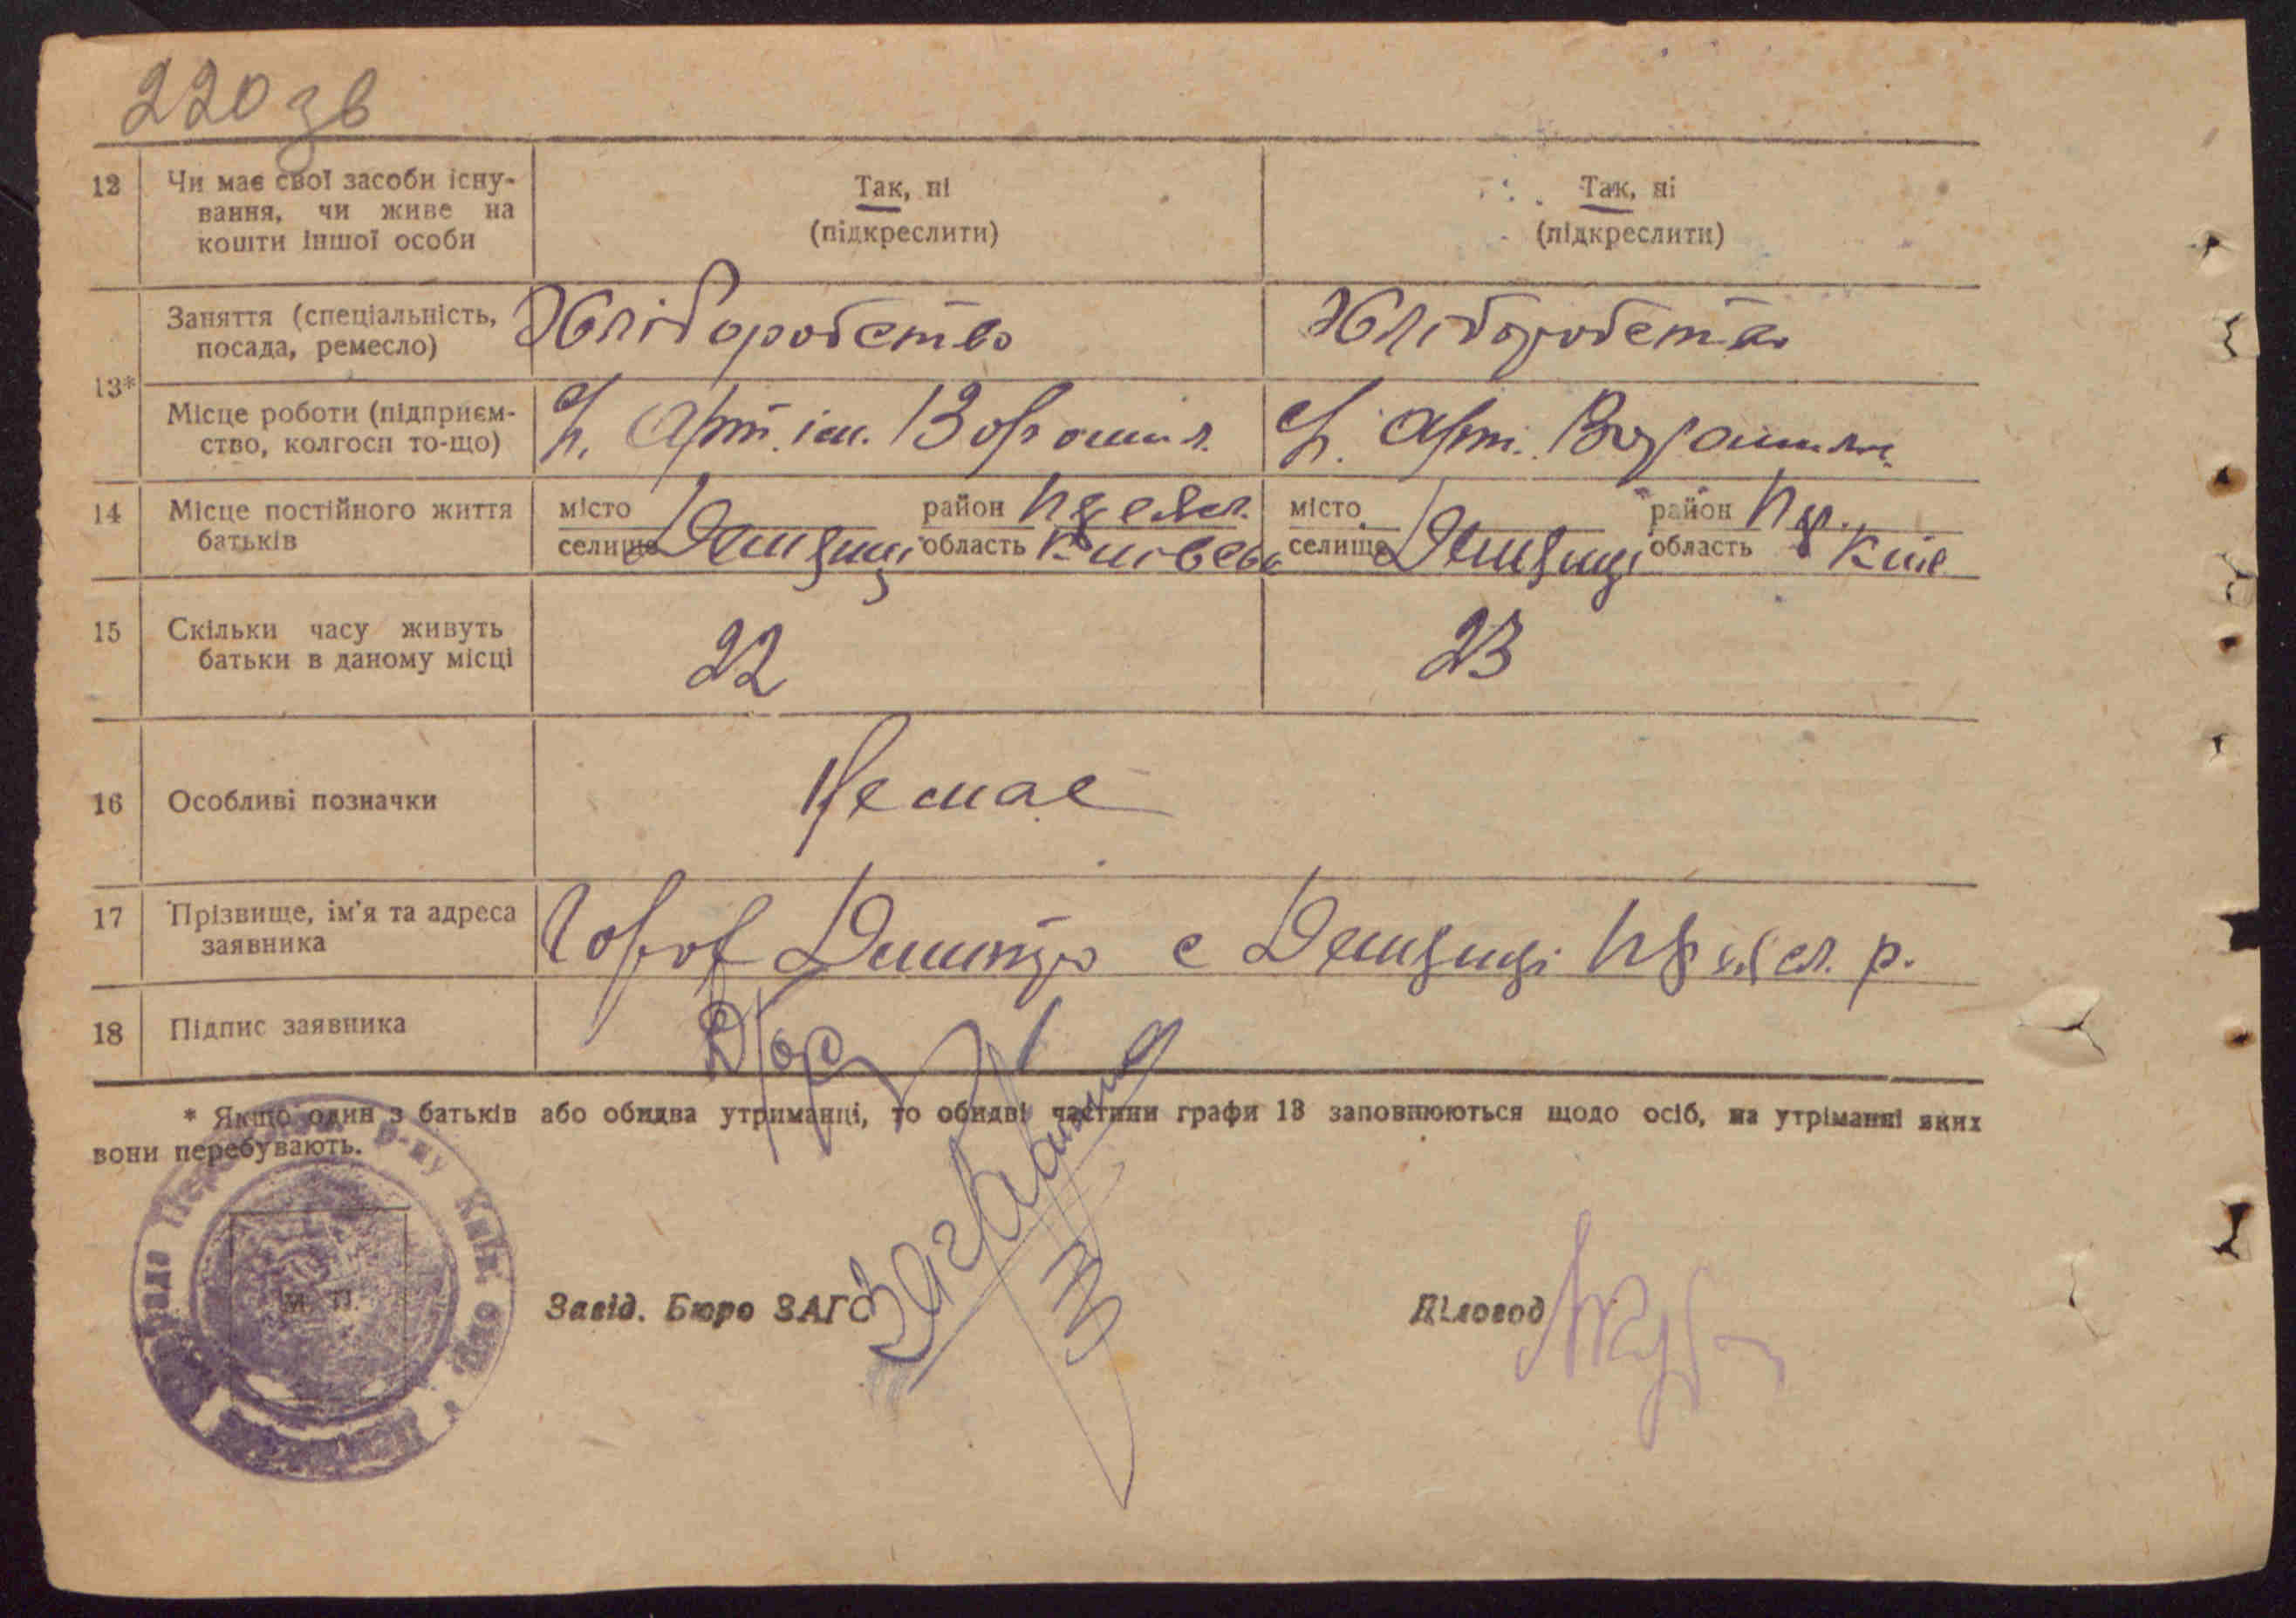 220 зв
12 Чи має свої засоби існу-
вання, чи живе на
кошти іншої особи
Так, ні
(підкреслити)
Так, ні
(підкреслити)
13*
Заняття (спеціальність,
посада, ремесло)
Хліборобство
Хліборобство
Місце роботи (підприєм-
ство, колгосп то-що)
Арт. ім. Ворошил.
Арт. Ворошил.
14 Місце постійного життя
батьків
місто
селище Демидівці
район
область Київськ
місто
селище Демидівці
район
область Київ
15 Скільки часу живуть
батьки в даному місці
22
23
16 Особливі позначки
Немає
17 Прізвище, ім'я та адреса
заявника
Дмитро с р.
18 Підпис заявника
* Якщо один з батьків або обидва утриманці, то обидві частини графи 13 заповнюються щодо осіб, на утріманні яких
вони перебувають.
М. П.
Завід. Бюро ЗАГС
Діловод